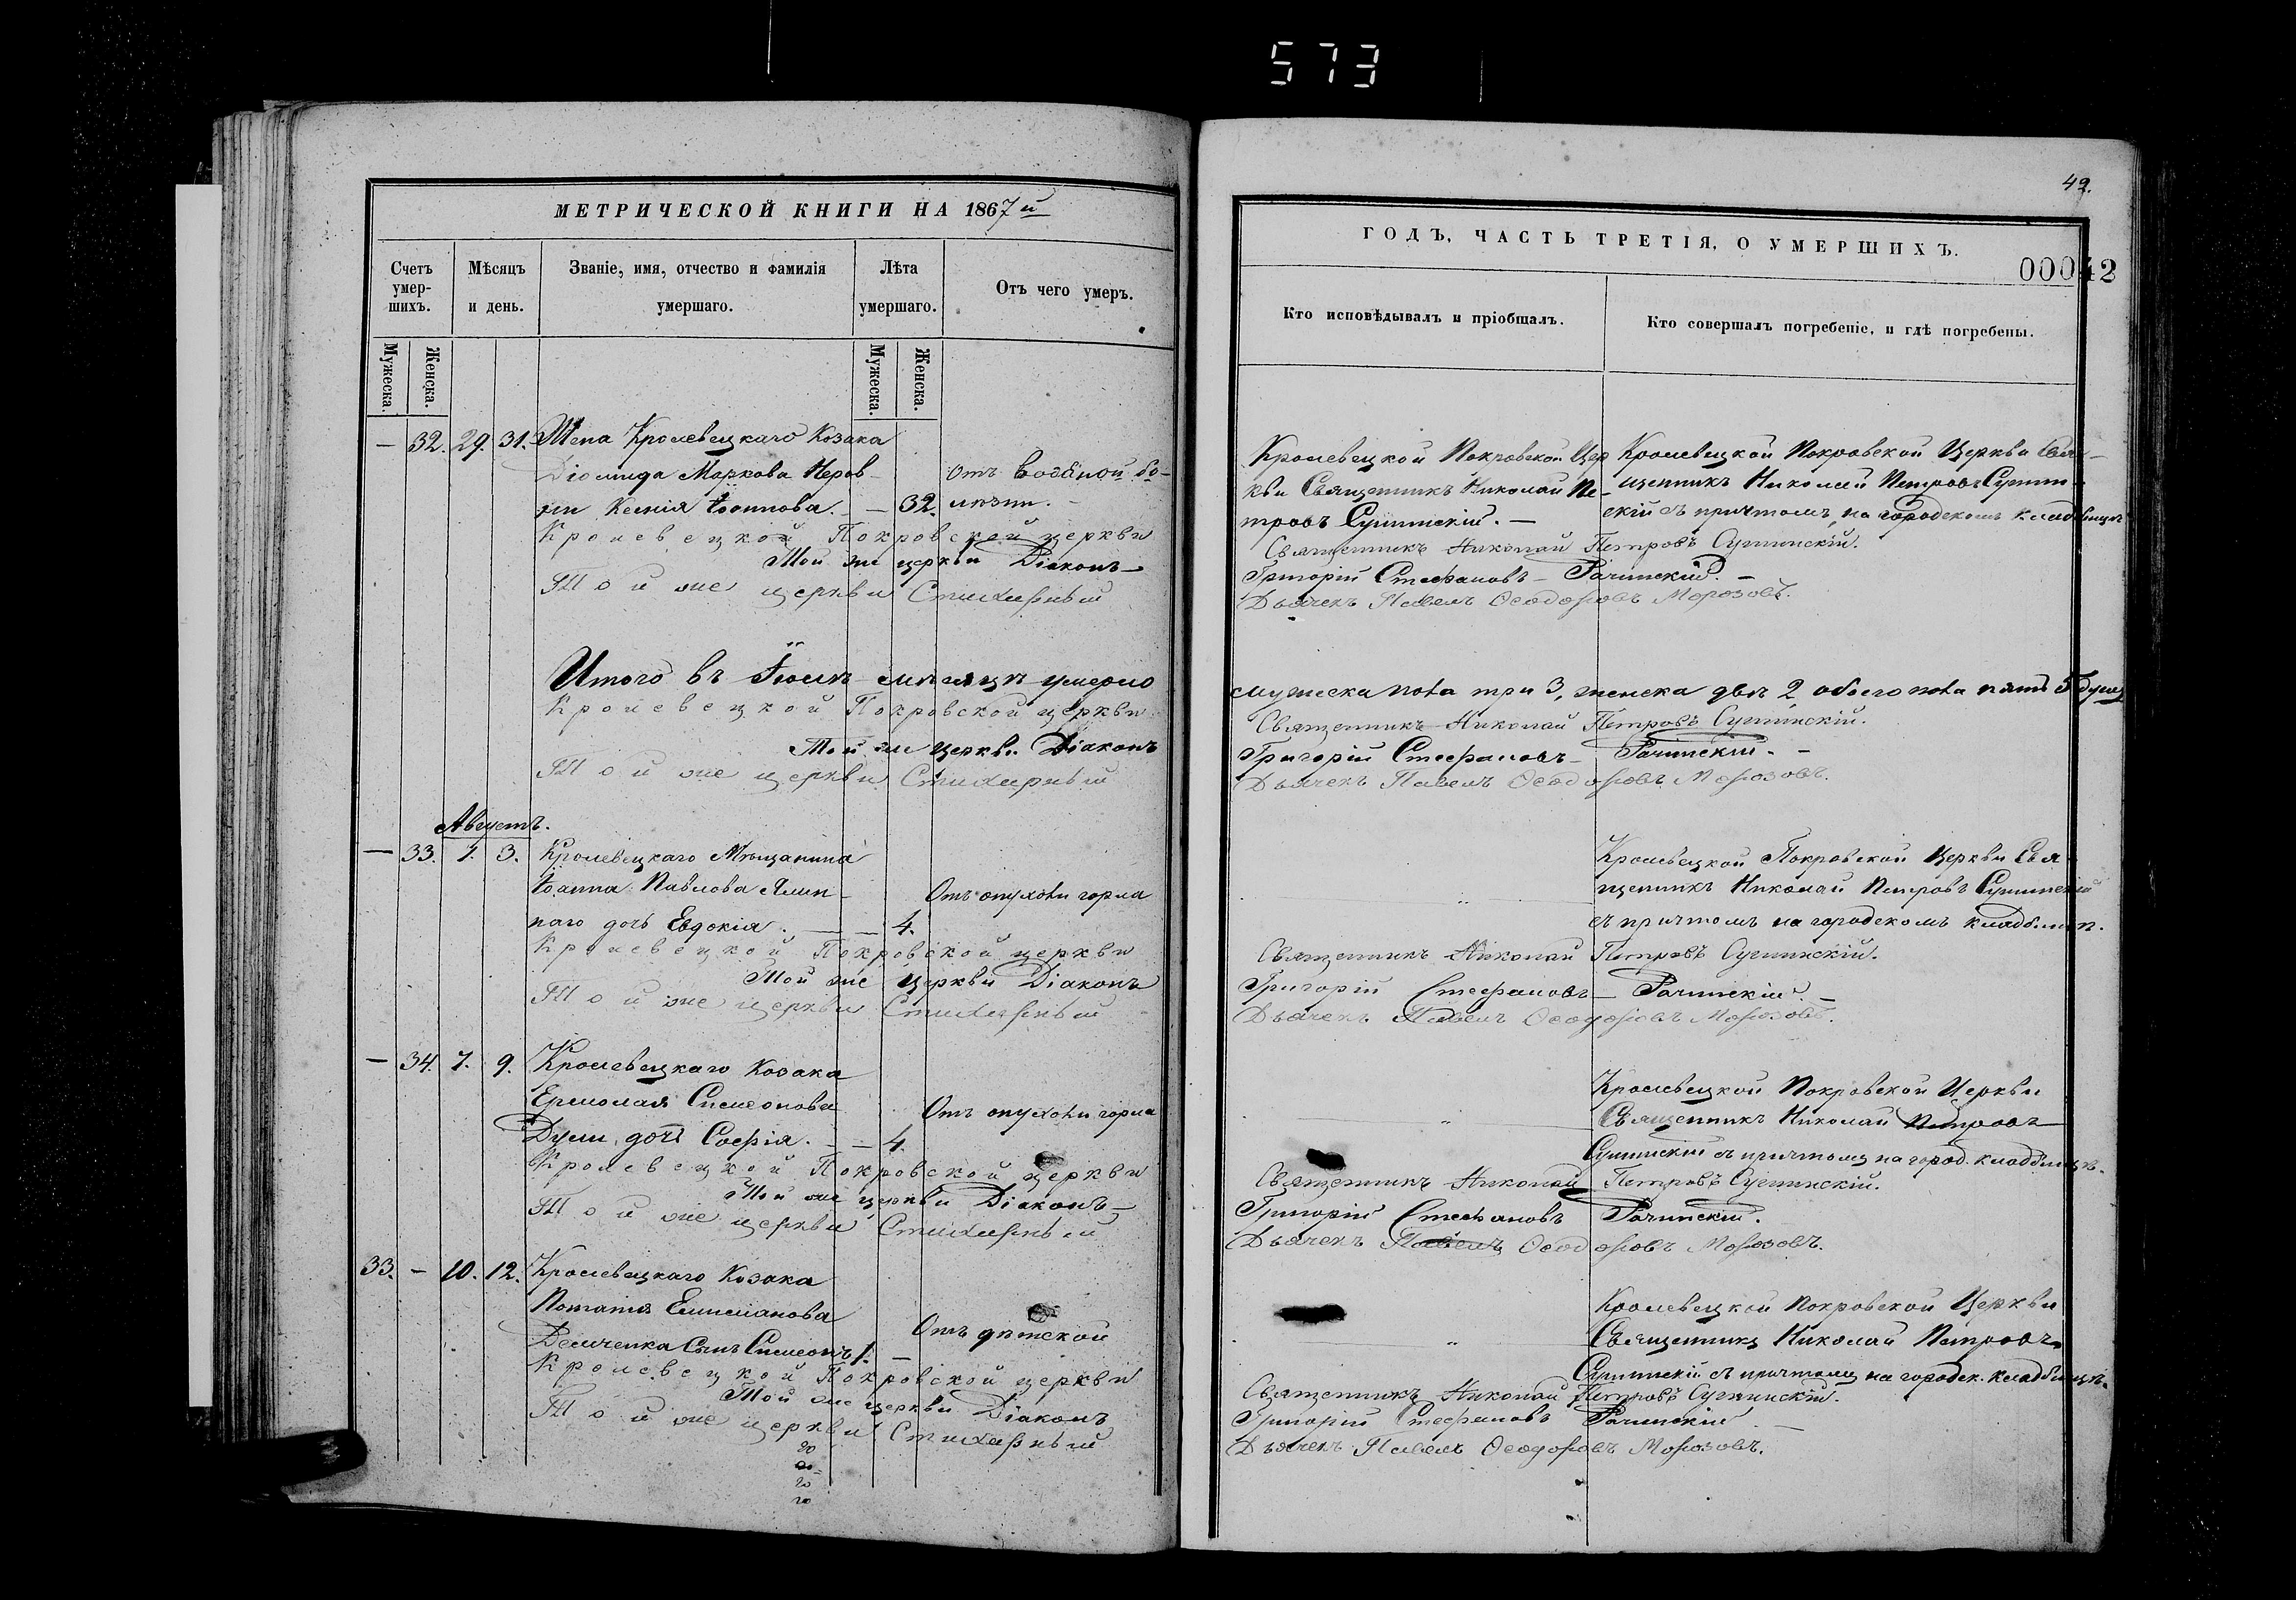 573
МЕТРИЧЕСКОЙ КНИГИ НА 1867 й
Счетъ умер-шихъ.
Мѣсяцъ и день.
Званіе, имя, отчество и фамилія умершаго.
Лѣта умершаго.
Отъ чего умеръ.
Мужеска.
Женска.
Мужеска.
Женска.
— 32. 29. 31. Жена Кролевецкаго Козака
Діомида Маркова
Ксенія Іоаннова. — — 32.
отъ водяной бо-
лѣзни. -
Кролевецкой Покровской церкви
Той же церкви Діаконъ
Той же церкви Стихарный
Итого въ Іюлѣ мѣсяцѣ умерло
Кролевецкой Покровской церкви
Той же церкви Діаконъ
Той же церкви Стихарный
Августъ.
— 33. 1. 3. Кролевецкаго Мѣщанина
Іоанна Павлова
дочь Евдокія. — — 4.
Отъ опухоли горла
Кролевецкой Покровской церкви
Той же церкви Діаконъ
Той же церкви Стихарный
— 34. 7. 9. Кролевецкаго Козака
Ермолая Симеонова
дочь Софія. — — 4.
Отъ опухоли горла
Кролевецкой Покровской церкви
Той же церкви Діаконъ
Той же церкви Стихарный
33. — 10. 12. Кролевецкаго Козака
Потапія Емиліанова
Демченка сынъ Симеонъ 1. —
Отъ дѣтской
Кролевецкой Покровской церкви
Той же церкви Діаконъ
Той же церкви Стихарный
42.
ГОДЪ, ЧАСТЬ ТРЕТІЯ, О УМЕРШИХЪ.
00042
Кто исповѣдывалъ и пріобщалъ.
Кто совершалъ погребеніе, и гдѣ погребены.
Кролевецкой Покровской Цер
кви Священникъ Николай Пе-
тровъ Сушинскій. —
Кролевецкой Покровской Церкви Свя-
щенникъ Николай Петровъ Сушин-
скій съ причтомъ, на городскомъ кладбищѣ
Священникъ Николай Петровъ Сушинскій.
Григорій Стефановъ — Рачинскій. —
Дьячекъ Павелъ Ѳеодоровъ Морозовъ.
мужеска пола три 3, женска двѣ 2, обоего пола пять 5 душъ
Священникъ Николай Петровъ Сушинскій.
Григорій Стефановъ — Рачинскій. —
Дьячекъ Павелъ Ѳеодоровъ Морозовъ.
Кролевецкой Покровской Церкви Свя-
щенникъ Николай Петровъ Сушинскій
съ причтомъ на городскомъ кладбищѣ.
Священникъ Николай Петровъ Сушинскій.
Григорій Стефановъ — Рачинскій. —
Дьячекъ Павелъ Ѳеодоровъ Морозовъ.
Кролевецкой Покровской Церкви
Священникъ Николай Петровъ
Сушинскій съ причтомъ на город. кладбищѣ.
Священникъ Николай Петровъ Сушинскій.
Григорій Стефановъ Рачинскій.
Дьячекъ Павелъ Ѳеодоровъ Морозовъ.
Кролевецкой Покровской Церкви
Священникъ Николай Петровъ
Сушинскій съ причтомъ на городск. кладбищѣ.
Священникъ Николай Петровъ Сушинскій.
Григорій Стефановъ Рачинскій
Дьячекъ Павелъ Ѳеодоровъ Морозовъ.